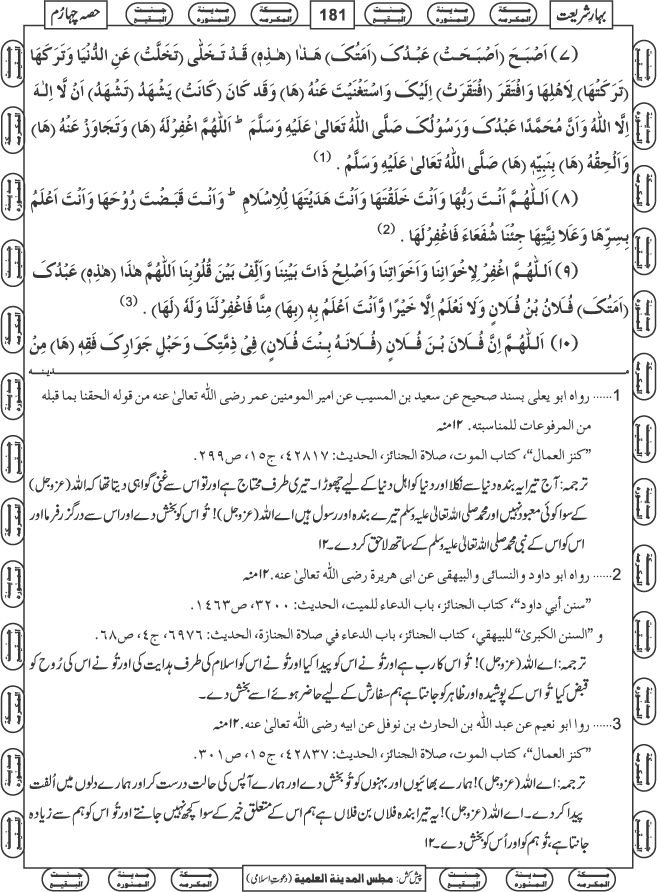 بہارِ شریعت
181
حصہ چہارم
مكة المكرمه
مدينة المنوره
جنت البقيع
(۷) اَصْبَحَ (اَصْبَحَتْ) عَبْدُکَ (اَمَتُکَ) هٰذَا (هٰذِهٖ) قَدْ تَخَلّٰی (تَخَلَّتْ) عَنِ الدُّنْیَا وَتَرَکَهَا
(تَرَکَتْهَا) لِاَهْلِهَا وَافْتَقَرَ (افْتَقَرَتْ) اِلَیْکَ وَاسْتَغْنَیْتَ عَنْهُ (هَا) وَقَدْ کَانَ (کَانَتْ) یَشْهَدُ (تَشْهَدُ) اَنْ لَّا اِلٰهَ
اِلَّا اللّٰهُ وَاَنَّ مُحَمَّدًا عَبْدُکَ وَرَسُوْلُکَ صَلَّی اللّٰهُ تَعَالٰی عَلَیْهِ وَسَلَّمَ ط اَللّٰهُمَّ اغْفِرْلَهٗ (هَا) وَتَجَاوَزْ عَنْهُ (هَا)
وَاَلْحِقْهُ (هَا) بِنَبِیِّهٖ (هَا) صَلَّی اللّٰهُ تَعَالٰی عَلَیْهِ وَسَلَّمَ . (1)
(۸) اَللّٰهُمَّ اَنْتَ رَبُّهَا وَاَنْتَ خَلَقْتَهَا وَاَنْتَ هَدَیْتَهَا لِلْاِسْلَامِ ط وَاَنْتَ قَبَضْتَ رُوْحَهَا وَاَنْتَ اَعْلَمُ
بِسِرِّهَا وَعَلَا نِیَّتِهَا جِئْنَا شُفَعَاءَ فَاغْفِرْلَهَا . (2)
(۹) اَللّٰهُمَّ اغْفِرْ لِاِخْوَانِنَا وَاَخَوَاتِنَا وَاَصْلِحْ ذَاتَ بَیْنِنَا وَاَلِّفْ بَیْنَ قُلُوْبِنَا اَللّٰهُمَّ هٰذَا (هٰذِهٖ) عَبْدُکَ
(اَمَتُکَ) فُلَانُ بْنُ فُلَانٍ وَلَا نَعْلَمُ اِلَّا خَیْرًا وَّاَنْتَ اَعْلَمُ بِهٖ (بِهَا) مِنَّا فَاغْفِرْلَنَا وَلَهٗ (لَهَا) . (3)
(۱۰) اَللّٰهُمَّ اِنَّ فُلَانَ بْنَ فُلَانٍ (فُلَانَةُ بِنْتَ فُلَانٍ) فِیْ ذِمَّتِکَ وَحَبْلِ جَوَارِکَ فَقِهٖ (هَا) مِنْ
1...... رواه ابو يعلى بسند صحيح عن سعيد بن المسيب عن امير المومنين عمر رضى الله تعالىٰ عنه من قوله الحقنا بما قبله
من المرفوعات للمناسبته. ۱۲منه
"كنز العمال"، كتاب الموت، صلاة الجنائز، الحديث: ۴۲۸۱۷، ج۱۵، ص۲۹۹.
ترجمہ: آج تیرا یہ بندہ دنیا سے نکلا اور دنیا کو اہلِ دنیا کے لیے چھوڑا۔ تیری طرف محتاج ہے اور تو اس سے غنی گواہی دیتا تھا کہ اللہ (عزوجل)
کے سوا کوئی معبود نہیں اور محمد صلی اللہ تعالیٰ علیہ وسلم تیرے بندہ اور رسول ہیں اے اللہ (عزوجل)! تُو اس کو بخش دے اور اس سے درگزر فرما اور
اس کو اس کے نبی محمد صلی اللہ تعالیٰ علیہ وسلم کے ساتھ لاحق کردے۔ ۱۲
2...... رواه ابو داود والنسائى والبيهقى عن ابى هريرة رضى الله تعالىٰ عنه. ۱۲منه
"سنن أبي داود"، كتاب الجنائز، باب الدعاء للميت، الحديث: ۳۲۰۰، ص۱۴۶۳.
و "السنن الكبرىٰ" للبيهقي، كتاب الجنائز، باب الدعاء في صلاة الجنازة، الحديث: ۶۹۷۶، ج۴، ص۶۸.
ترجمہ: اے اللہ (عزوجل)! تُو اس کا رب ہے اور تُو نے اس کو پیدا کیا اور تُو نے اس کو اسلام کی طرف ہدایت کی اور تُو نے اس کی رُوح کو
قبض کیا تُو اس کے پوشیدہ اور ظاہر کو جانتا ہے ہم سفارش کے لیے حاضر ہوئے اسے بخش دے۔
3...... روا ابو نعيم عن عبد الله بن الحارث بن نوفل عن ابيه رضى الله تعالىٰ عنه. ۱۲منه
"كنز العمال"، كتاب الموت، صلاة الجنائز، الحديث: ۴۲۸۳۷، ج۱۵، ص۳۰۱.
ترجمہ: اے اللہ (عزوجل)! ہمارے بھائیوں اور بہنوں کو تُو بخش دے اور ہمارے آپس کی حالت درست کر اور ہمارے دلوں میں اُلفت
پیدا کردے۔ اے اللہ (عزوجل)! یہ تیرا بندہ فلاں بن فلاں ہے ہم اس کے متعلق خیر کے سوا کچھ نہیں جانتے اور تُو اس کو ہم سے زیادہ
جانتا ہے، تُو ہم کو اور اُس کو بخش دے۔ ۱۲
پیش کش: مجلس المدینة العلمیة (دعوتِ اسلامی)